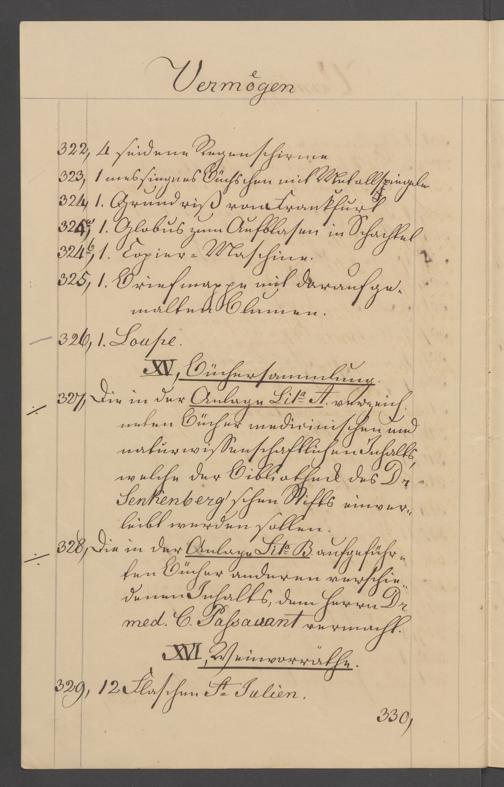 Vermögen
322, 4 seidene Regenschirme
323, 1 messingnes Büchschen mit Metallspiegeln
324, 1. Grundriß von Frankfurt
324a, 1. Globus zum Aufblasen in Schachtel
324b, 1. Copier-Maschine.
325, 1. Briefmappe mit darauf ge-
malten Blumen.
326, 1. Loupe.
XV, Büchersammlung.
327, Die in der Anlage Lit. A verzeich
neten Bücher medicinischen und
naturwissenschaftlichen Inhalts,
welche der Bibliothek des Dr
Senkenberg'schen Stifts einver-
leibt werden sollen.
328, Die in der Anlage Lit. B. aufgeführ-
ten Bücher anderen verschie-
denen Inhalts, dem Herrn Dr
med. C. Passavant vermacht.
XVI, Weinvorräthe.
329, 12 Flaschen St. Julien.
330,